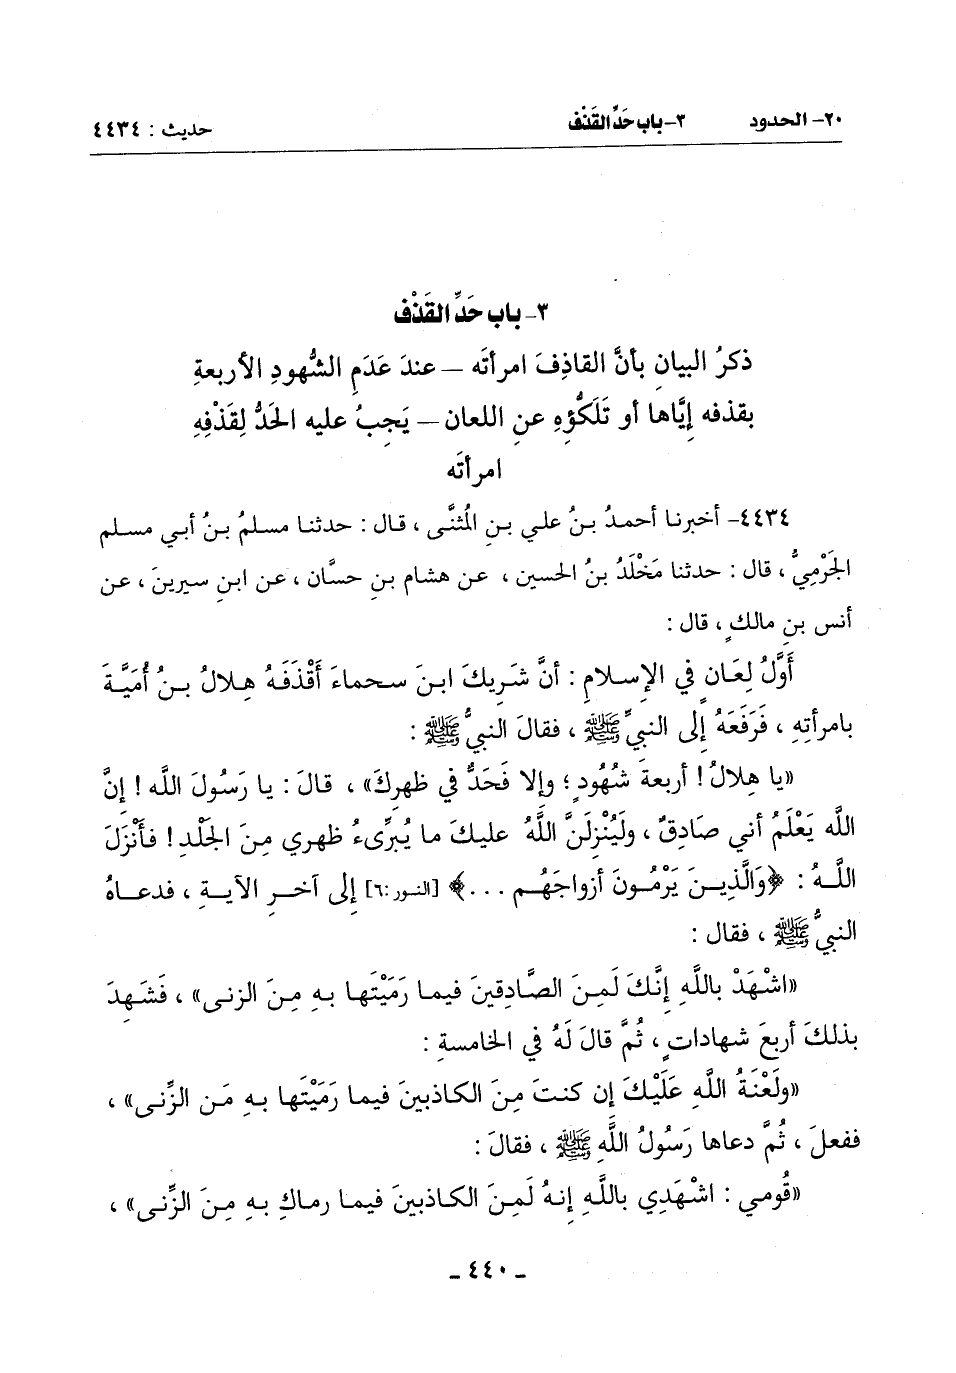 ٢٠- الحدود ٣- باب حَدِّ القَذْف حديث : ٤٤٣٤
٣- باب حَدِّ القَذْف
ذكرُ البيانِ بأنَّ القاذِفَ امرأتَه – عندَ عَدَمِ الشُّهودِ الأربعةِ
بقذفه إيَّاها أو تَلَكُّؤِهِ عنِ اللعان – يَجِبُ عليه الحَدُّ لِقَذْفِهِ
امرأتَه
٤٤٣٤- أخبرنا أحمدُ بنُ علي بنِ المُثنَّى ، قال : حدثنا مسلمُ بنُ أبي مسلم
الجَرْميُّ ، قال : حدثنا مَخْلَدُ بنُ الحسين ، عن هشام بنِ حسَّان ، عن ابنِ سيرينَ ، عن
أنس بنِ مالكٍ ، قال :
أَوَّلُ لِعَانٍ في الإسلامِ : أنَّ شَرِيكَ ابنَ سحماءَ أَقْذَفَهُ هِلالُ بنُ أُمَيَّةَ
بامرأتِهِ ، فَرَفَعَهُ إلى النبيِّ ﷺ ، فقالَ النبيُّ ﷺ :
«يا هِلالُ! أربعةَ شُهُودٍ ؛ وإلا فَحَدٌّ في ظهرِكَ» ، قالَ : يا رَسُولَ الله ! إنَّ
الله يَعْلَمُ أني صَادِقٌ ، ولَيُنْزِلَنَّ اللَّهُ عليكَ ما يُبَرِّىءُ ظهري مِنَ الجَلْدِ! فأَنْزَلَ
اللَّهُ : ﴿وَالَّذِينَ يَرْمُونَ أزواجَهُم ...﴾ [النور :٦] إلى آخرِ الآيةِ ، فدعاهُ
النبيُّ ﷺ ، فقال :
«اشْهَدْ باللَّهِ إنَّكَ لَمِنَ الصَّادِقينَ فيما رَمَيْتَها بهِ مِنَ الزنى» ، فَشَهِدَ
بذلكَ أربعَ شهاداتٍ ، ثُمَّ قالَ لَهُ في الخامسةِ :
«ولَعْنَةُ اللَّهِ عَلَيْكَ إن كنتَ مِنَ الكاذبينَ فيما رَمَيْتَها بهِ مَن الزِّنى» ،
ففعلَ ، ثُمَّ دعاها رَسُولُ اللَّهِ ﷺ ، فقالَ :
«قُومي : اشْهَدِي باللَّهِ إنهُ لَمِنَ الكاذبينَ فيما رماكِ بهِ مِنَ الزِّنى» ،
- ٤٤٠ -